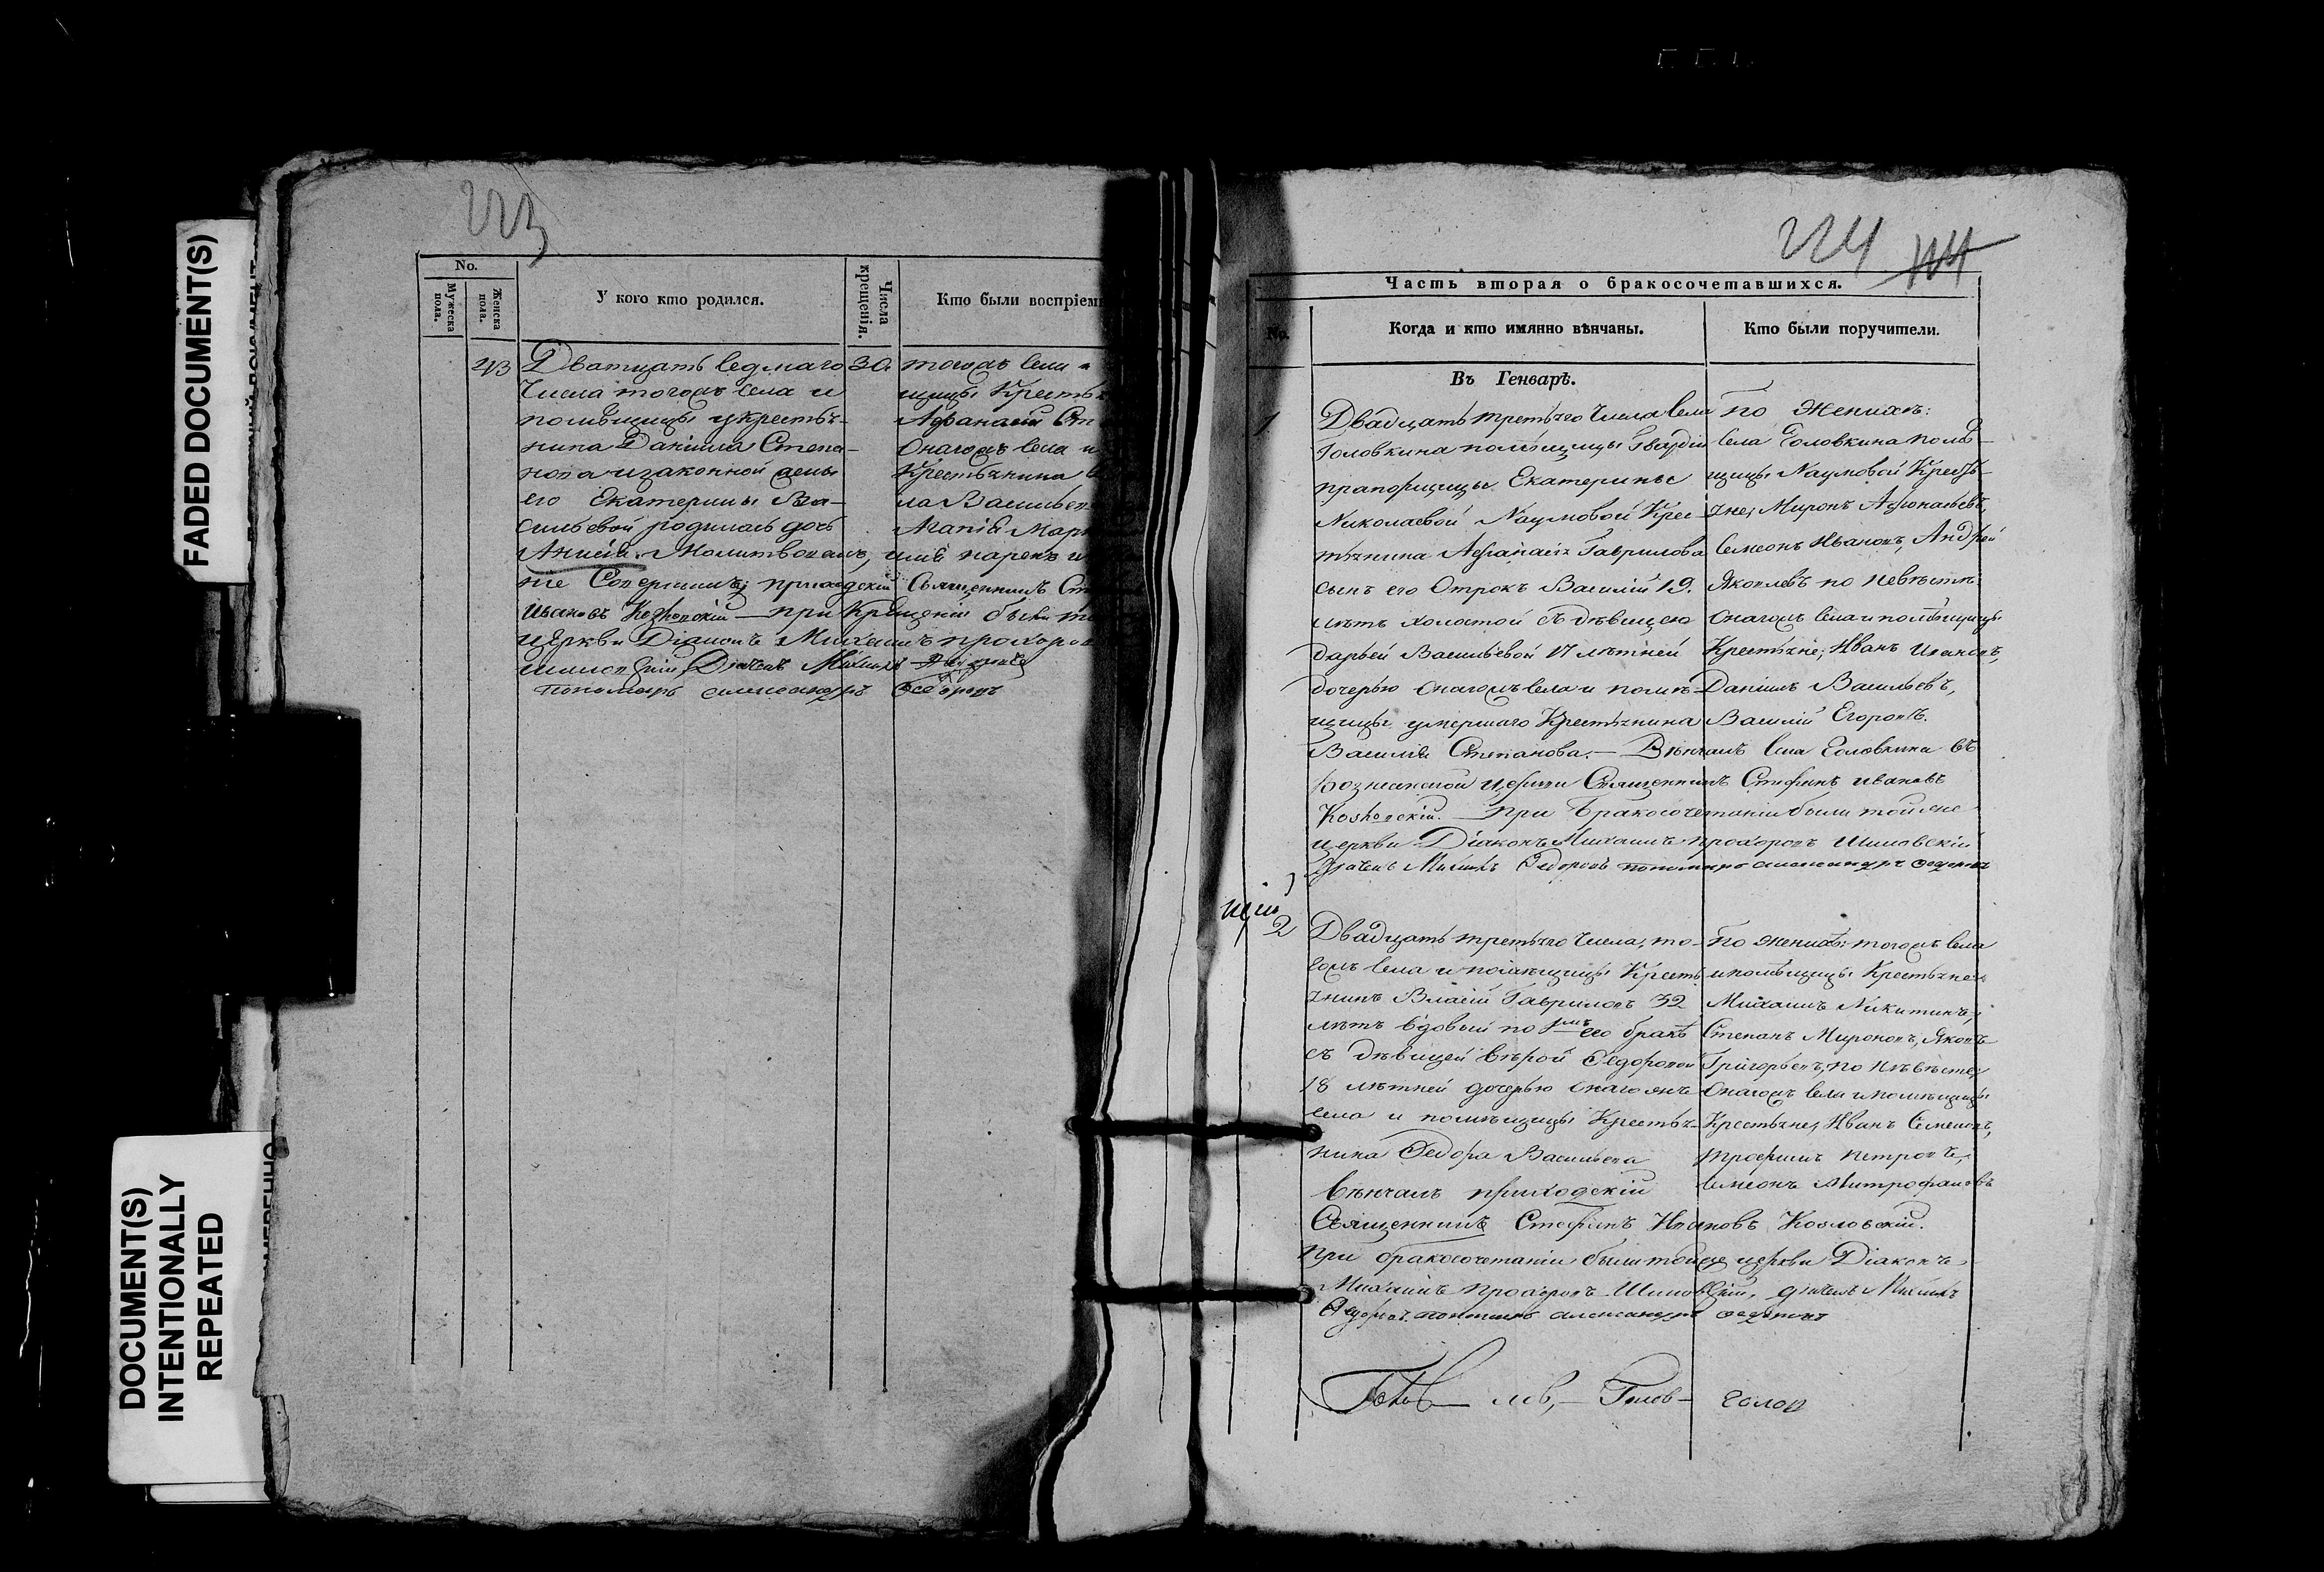 FADED DOCUMENT(S)
DOCUMENT(S)
INTENTIONALLY
REPEATED
223
No.
Мужеска пола.
Женска пола.
У кого кто родился.
Числа крещенія.
Кто были воспріем
43
Дватцать седмаго 30. тогожъ села и
Числа тогожъ села и
помѣщицы укрестья-
нина Даніила Степа-
нова и законной жены
его Екатерины Ва-
сильевой родилась дочь
Анисія. Молитвовалъ, имя нарекъ и
ніе Совершилъ; приходскій Священникъ Ст
Ивановъ Козловскій — при Крещеніи были т
церкви Діаконъ Михаилъ прохоров
Шиловскій, Дьячекъ
пономарь александръ Федоровъ
щицы Кресть
Афанасій Ст
Онагожъ села и
Крестьянина
ла Васильев
Агапія Мар
224
Часть вторая о бракосочетавшихся.
No.
Когда и кто имянно вѣнчаны.
Кто были поручители.
Въ Генварѣ.
1
Двадцать третьяго Числа села
Головкина помѣщицы Гвардіи
прапорщицы Екатерины
Николаевой Наумовой Крес-
тьянина Афанасія Гаврилова
сынъ его Отрокъ Василій 19.
лѣтъ холостой съ дѣвицею
Дарьей Васильевой 17 лѣтней
дочерью Онагожъ села и помѣ-
щицы умершаго Крестьянина
Василія Степанова. — Вѣнчалъ села Головкина въ
Вознесенской церкви Священникъ Стефанъ Ивановъ
Козловскій. — При бракосочетаніи были той же
церкви Діаконъ Михаилъ прохоровъ Шиловскій
Дьячекъ Федоровъ пономарь александръ федоровъ
По Женихѣ:
села Головкина помѣ-
щицы Наумовой Кресть-
яне; Миронъ Афонасьевъ,
Семеонъ Ивановъ, Андрей
Яковлевъ по невѣстѣ:
Онагожъ села и помѣщицы
Крестьяне; Иванъ Ивановъ,
Даніилъ Васильевъ,
Василій Егоровъ.
2
Двадцать третьяго Числа, то-
гожъ села и помѣщицы Кресть-
янинъ Власій Гавриловъ 32
лѣтъ вдовый по бракѣ
съ дѣвицей вѣрой Федоровой
18 лѣтней дочерью Онагожъ
села и помѣщицы Крестья-
нина Федора Васильева
вѣнчалъ приходскій
Священникъ Стефанъ Ивановъ Козловскій.
При бракосочетаніи были тойже церкви Діаконъ
Михаилъ прохоровъ Шиловскій, дьячекъ
Федоровъ. пономарь александръ федоровъ
По женихѣ: тогожъ села
и помѣщицы Крестьяне
Михаилъ Никитинъ,
Степанъ Мироновъ, Яковъ
Григорьевъ, по невѣсте;
Онагожъ села и помѣщицы
Крестьяне, Иванъ Семеновъ,
трофимъ петровъ,
Семеонъ Митрофановъ